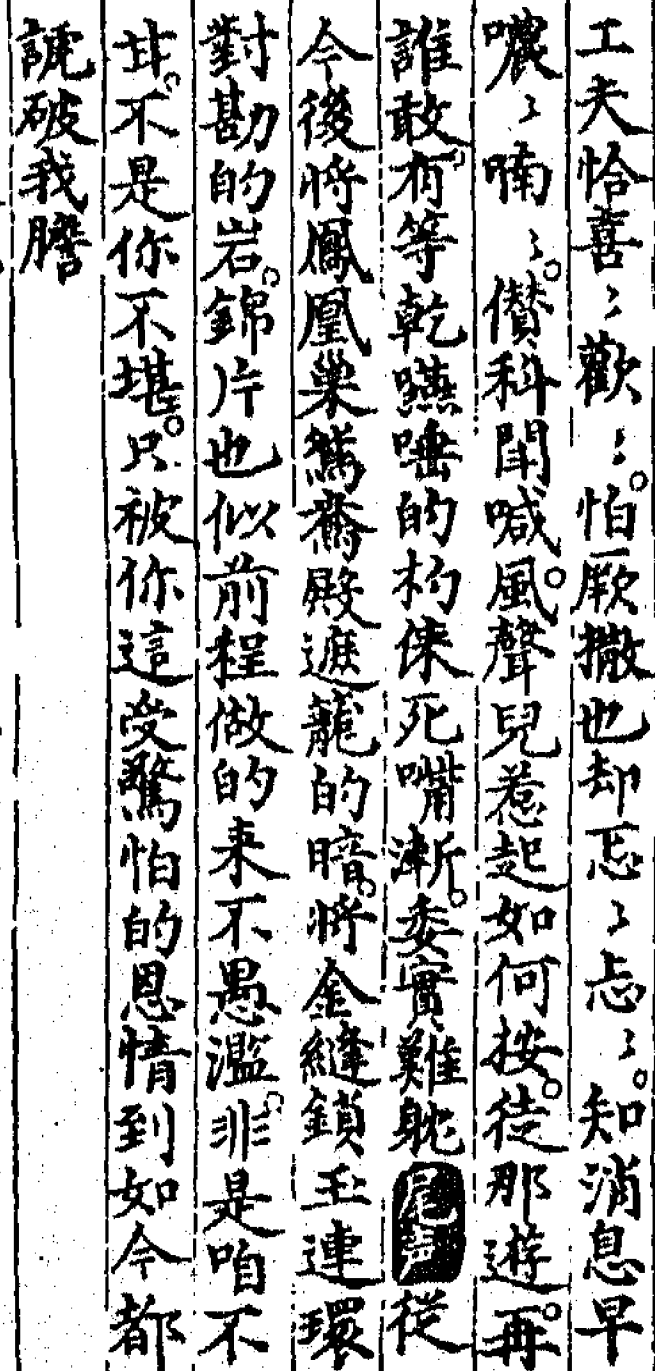 工夫恰喜〻歡〻。怕厥撒也却忑〻忐〻。知消息早
噥〻喃〻。儧科閗喊風。聲兒惹起如何按。徒那遊。再
誰敢。有等乾嚥唾的杓倈死嘴漸。委實難躭尾声從
今後將鳳凰巢鴛鴦殿遮籠的暗。將金縫鎖玉連環
對勘的岩。錦片也似前程做的来不愚濫。非是咱不
甘。不是你不堪。只被你這受驚怕的恩情到如今都
諕破我膽